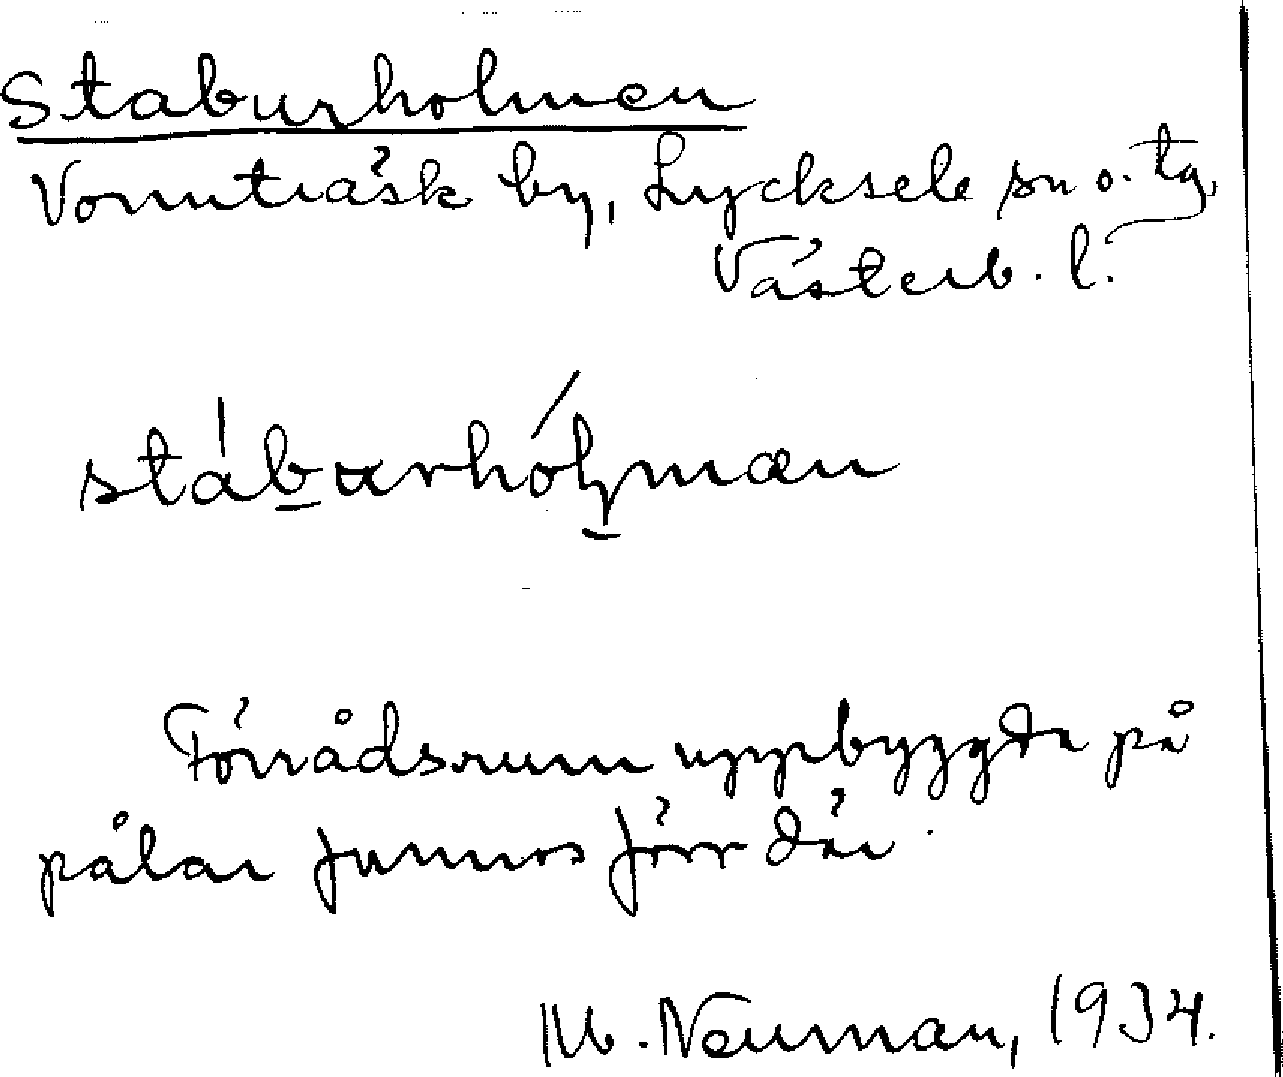 Staburholmen
Vormträsk by, Lycksele sn o. tg,
Västerb. l.
stáburhóɭmæn
Förråds.rum uppbyggda på
pålar funnos förr där.
M. Neuman, 1934.